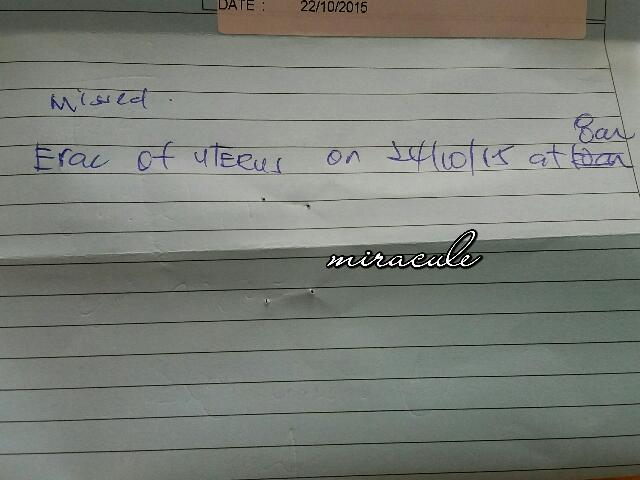 DATE : 22/10/2015
Missed.
8am
Evac of uterus on 24/10/15 at
miracule